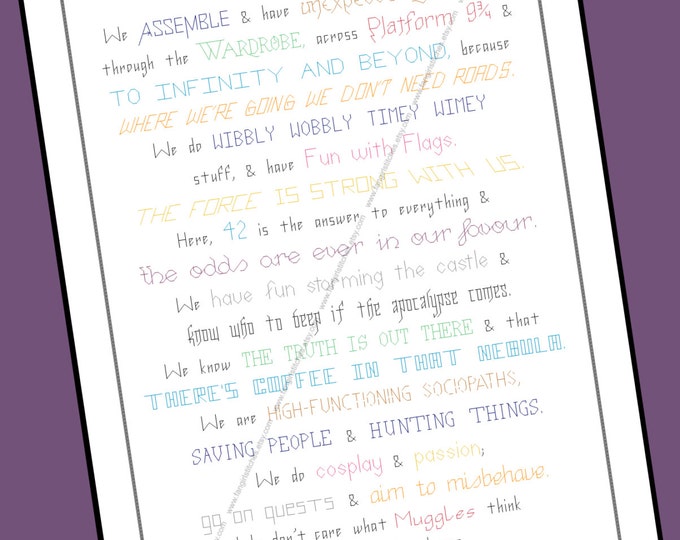 We ASSEMBLE & have
through the WARDROBE, across Platform 9¾ &
TO INFINITY AND BEYOND, because
WHERE WE'RE GOING WE DON'T NEED ROADS.
We do WIBBLY WOBBLY TIMEY WIMEY
stuff, & have Fun with Flags.
THE FORCE IS STRONG WITH US.
Here, 42 is the answer to everything &
the odds are ever in our favour.
We have fun storming the castle &
know who to beep if the apocalypse comes.
We know THE TRUTH IS OUT THERE & that
THERE'S COFFEE IN THAT NEBULA.
We are HIGH-FUNCTIONING SOCIOPATHS,
SAVING PEOPLE & HUNTING THINGS.
We do cosplay & passion;
go on quests & aim to misbehave.
don't care what Muggles think